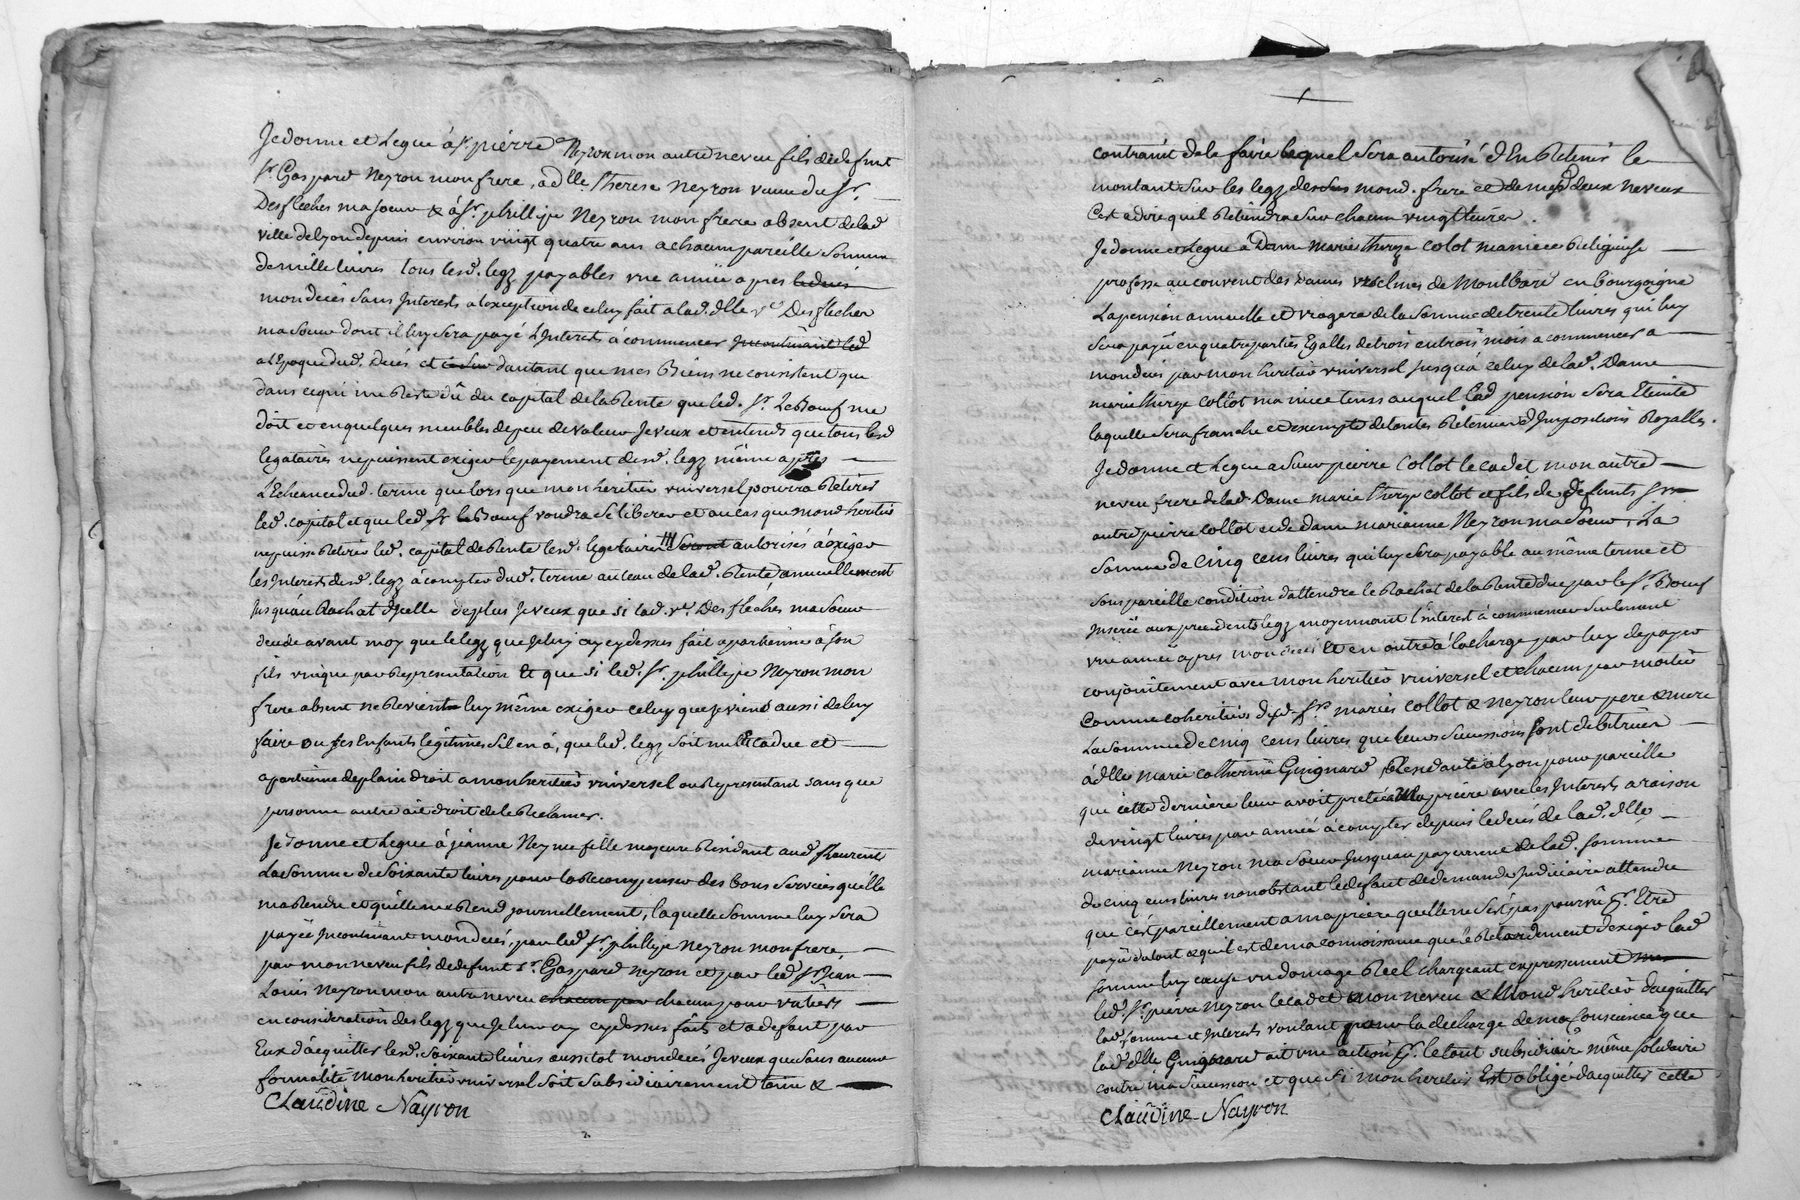 Je donne et Legue à sr. pierre Neyron mon autre neveu fils de defunt
sr. Gaspard Neyron mon frere, a dlle therese neyron veuve du sr.
Desfleches ma soeur & à sr. phillipe Neyron mon frere absent de lad
ville de lyon depuis environ vingt quatre ans a chacun pareille somme
de mille livres tous lesd. legz payables une année apres led deces
mon deces sans Interests a l'exception de celuy fait a lad. dlle ve Desfleches
ma soeur dont il luy sera payé L'Interest à commencer Incontinant led
a l'Epoque dud. Deces et dautant que mes Biens ne consistent que
dans ce qui me Reste dû du capital de la Rente que led. sr. LeBoeuf me
doit et en quelques meubles de peu de valeur Je veux et entends que tous lesd
legataires ne puissent exiger le payement desd. legz même apres
L'Echeance dud. terme que lors que mon heritier universel pourra Retirer
led. capital et que led. sr leBoeuf voudra se liberer et au cas que mond heritier
ne puisse Retirer led. capital de Rente lesd. legataires seront autorisés à exiger
les Interests desd. legz à compter dud. terme au taux de lad. Rente, annuellement
Jusqu'au Rachat d'Icelle de plus Je veux que si lad. ve. Desfleches ma soeur
decede avant moy que le legz que Je luy ay cy dessus fait apartienne à son
fils unique par Representation Et que si led. sr. phillipe Neyron mon
frere absent ne Revient luy même exiger celuy que je viens aussi de luy
faire ou ses Enfants legitimes s'il en à, que led. legz soit nul & caduc et
apartienne de plain droit a mon heritier universel ou Representant sans que
personne autre aie droit de le Reclamer.
Je donne et Legue à jeanne Ney fille majeure Residant aud. st Laurent
La somme de soixante livres pour la Recompenser des bons services qu'elle
m'a Rendu et qu'elle me Rend journellement, laquelle somme luy sera
payée Incontinant mon deces, par led. sr. phillipe Neyron mon frere,
par mon neveu fils de defunt sr. Gaspard neyron et par led. sr. Jean
Louis Neyron mon autre neveu chacun par chacun pour un tiers
en consideration des legz que Je leur ay cy dessus faits et a defaut par
Eux d'acquitter lesd. soixante livres aussitot mon deces Je veux que sans aucune
formalité mon heritier universel soit subsidiairement tenu &
Claudine Nayron
contraint de le faire lequel sera autorisé d'En Retenir le
montant sur les legz desdits mond. frere et de mesd. deux neveux
C'est a dire qu'il Retiendra sur chacun vingt livres.
Je donne et Legue à Dame marie therese Colot ma niece Religieuse
professe au couvent des Dames urselines de Montbard en bourgoigne
La pension annuelle et viagere de la somme de trente livres qui luy
sera payée en quatre parties Egalles de trois en trois mois a commencer a
mon deces par mon heritier universel Jusqu'à celuy de lad. Dame
marie therese Collot ma niece tems auquel lad pension sera Eteinte
laquelle sera franche et exempte de toutes Retenues & Impositions Royalles.
Je donne et Legue a sieur pierre Collot le cadet mon autre
neveu frere de lad. Dame marie therese Collot et fils de defunts srs
autre pierre Collot et de dame marianne Neyron ma soeur, La
somme de Cinq cens livres qui luy sera payable au même terme et
sous pareille condition d'attendre le Rachat de la Rente due par le sr. Boeuf
Inserée aux precedents legz moyennant l'interest à commencer seulement
une année apres mon deces Et en outre à la charge par luy de payer
conjointement avec mon heritier universel et chacun par moitié
comme coheritiers desd. srs mariés Collot & Neyron leur pere & mere
La somme de Cinq cens livres que leurs successions sont debitrices
à dlle marie Catherine Guignard Residante à lyon pour pareille
que cette derniere leur avoit pretée à ma priere avec les Interests a raison
de vingt livres par année à compter depuis le deces de lad. dlle
marianne Neyron ma soeur Jusqu'au payement de lad. somme
de cinq cens livres nonobstant le defaut de demande Judiciaire attendu
que c'est pareillement a ma priere qu'elle ne s'est pas pourvue pr. Etre
payée du tout & qu'il est de ma connoissance que le Retardement d'exiger lad
somme luy cause un domage Reel chargeant expressement mon
led. sr. pierre Neyron le cadet & mon neveu & Mond heritier d'acquitter
lad. somme et Interests voulant pour la decharge de ma Conscience que
lad. dlle Guignard ait une action pr. le tout subsidiaire même solidaire
contre ma succession et que si mon heritier Est obligé d'acquitter cette
Claudine Nayron